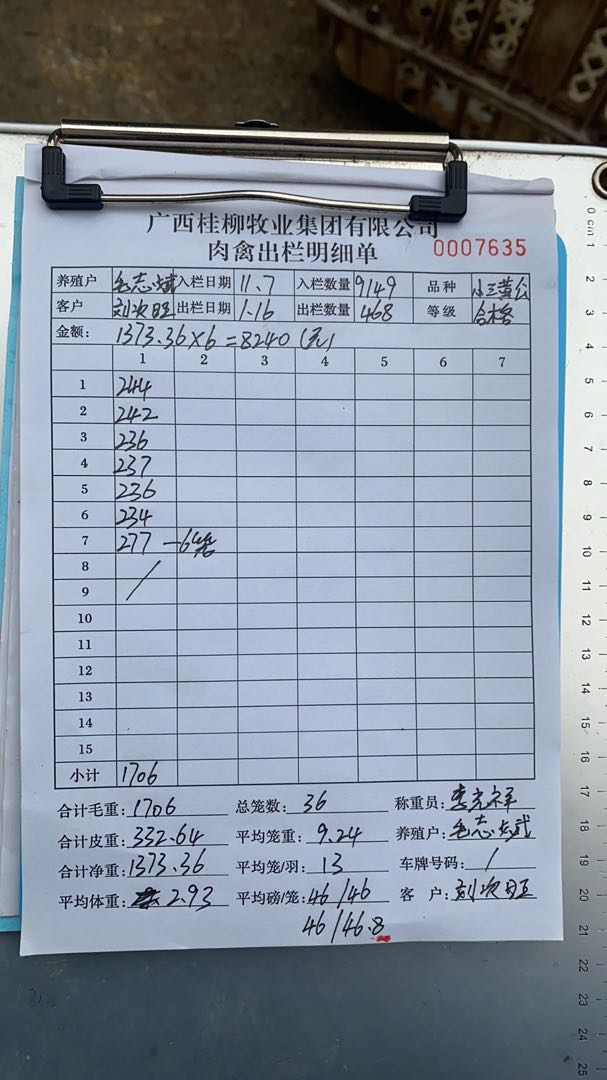 广西桂柳牧业集团有限公司
肉禽出栏明细单 0007635
养殖户 毛志斌 入栏日期 11.7 入栏数量 9149 品种 小三黄公
客户 刘次旺 出栏日期 1.16 出栏数量 468 等级 合格
金额: 1373.36×6=8240(元)
1 2 3 4 5 6 7
1 244
2 242
3 236
4 237
5 236
6 234
7 277 —6笼
8
9
10
11
12
13
14
15
小计 1706
合计毛重: 1706 总笼数: 36 称重员: 李光祥
合计皮重: 332.64 平均笼重: 9.24 养殖户: 毛志斌
合计净重: 1373.36 平均笼/羽: 13 车牌号码: /
平均体重: 2.93 平均磅/笼: 46/46 客户: 刘次旺
46/46.8
0 cm 1
2
3
4
5
6
7
8
9
10
11
12
13
14
15
16
17
18
19
20
21
22
23
24
25